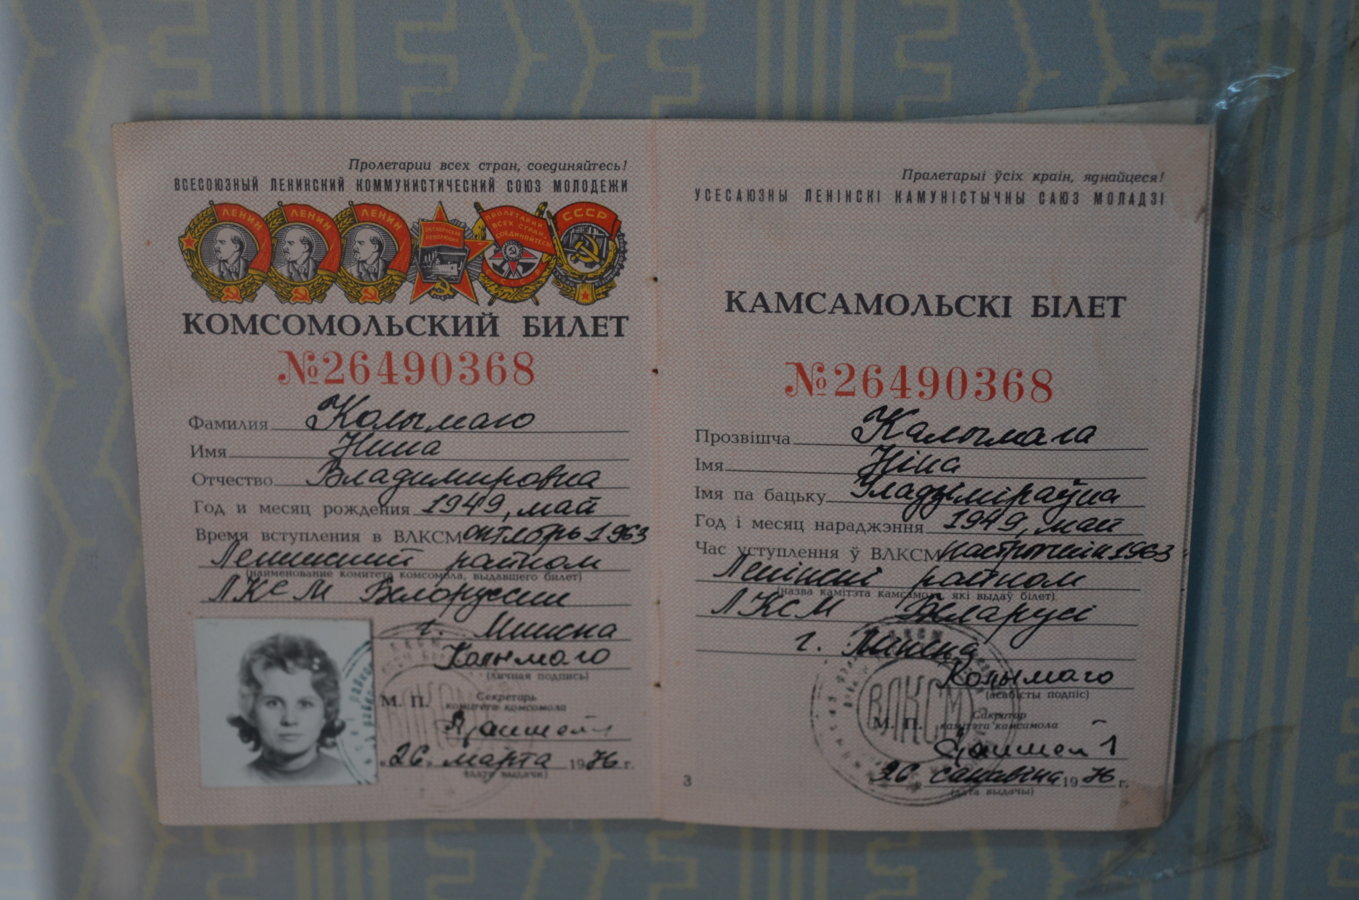 Пролетарии всех стран, соединяйтесь!
ВСЕСОЮЗНЫЙ ЛЕНИНСКИЙ КОММУНИСТИЧЕСКИЙ СОЮЗ МОЛОДЕЖИ
ЛЕНИН ЛЕНИН ЛЕНИН ОКТЯБРЬСКАЯ РЕВОЛЮЦИЯ ПРОЛЕТАРИИ ВСЕХ СТРАН, СОЕДИНЯЙТЕСЬ! СССР
КОМСОМОЛЬСКИЙ БИЛЕТ
№26490368
Фамилия Колымаго
Имя Нина
Отчество Владимировна
Год и месяц рождения 1949, май
Время вступления в ВЛКСМ октябрь 1963
Ленинский райком
(наименование комитета комсомола, выдавшего билет)
ЛКСМ Белоруссии
г. Минска
Колымаго
(личная подпись)
М. П. Секретарь
комитета комсомола
26 марта 1976 г.
(дата выдачи)
Пралетарыі ўсіх краін, яднайцеся!
УСЕСАЮЗНЫ ЛЕНІНСКІ КАМУНІСТЫЧНЫ САЮЗ МОЛАДЗІ
КАМСАМОЛЬСКІ БІЛЕТ
№26490368
Прозвішча Калымага
Імя Ніна
Імя па бацьку Уладзіміраўна
Год і месяц нараджэння 1949, май
Час уступлення ў ВЛКСМ кастрычнік 1963
Ленінскі райком
(назва камітэта камсамола, які выдаў білет)
ЛКСМ Беларусі
г. Мінска
Колымаго
(асабісты подпіс)
ВЛКСМ
М. П. Сакратар
камітэта камсамола
26 сакавіка 1976 г.
(дата выдачы)
3